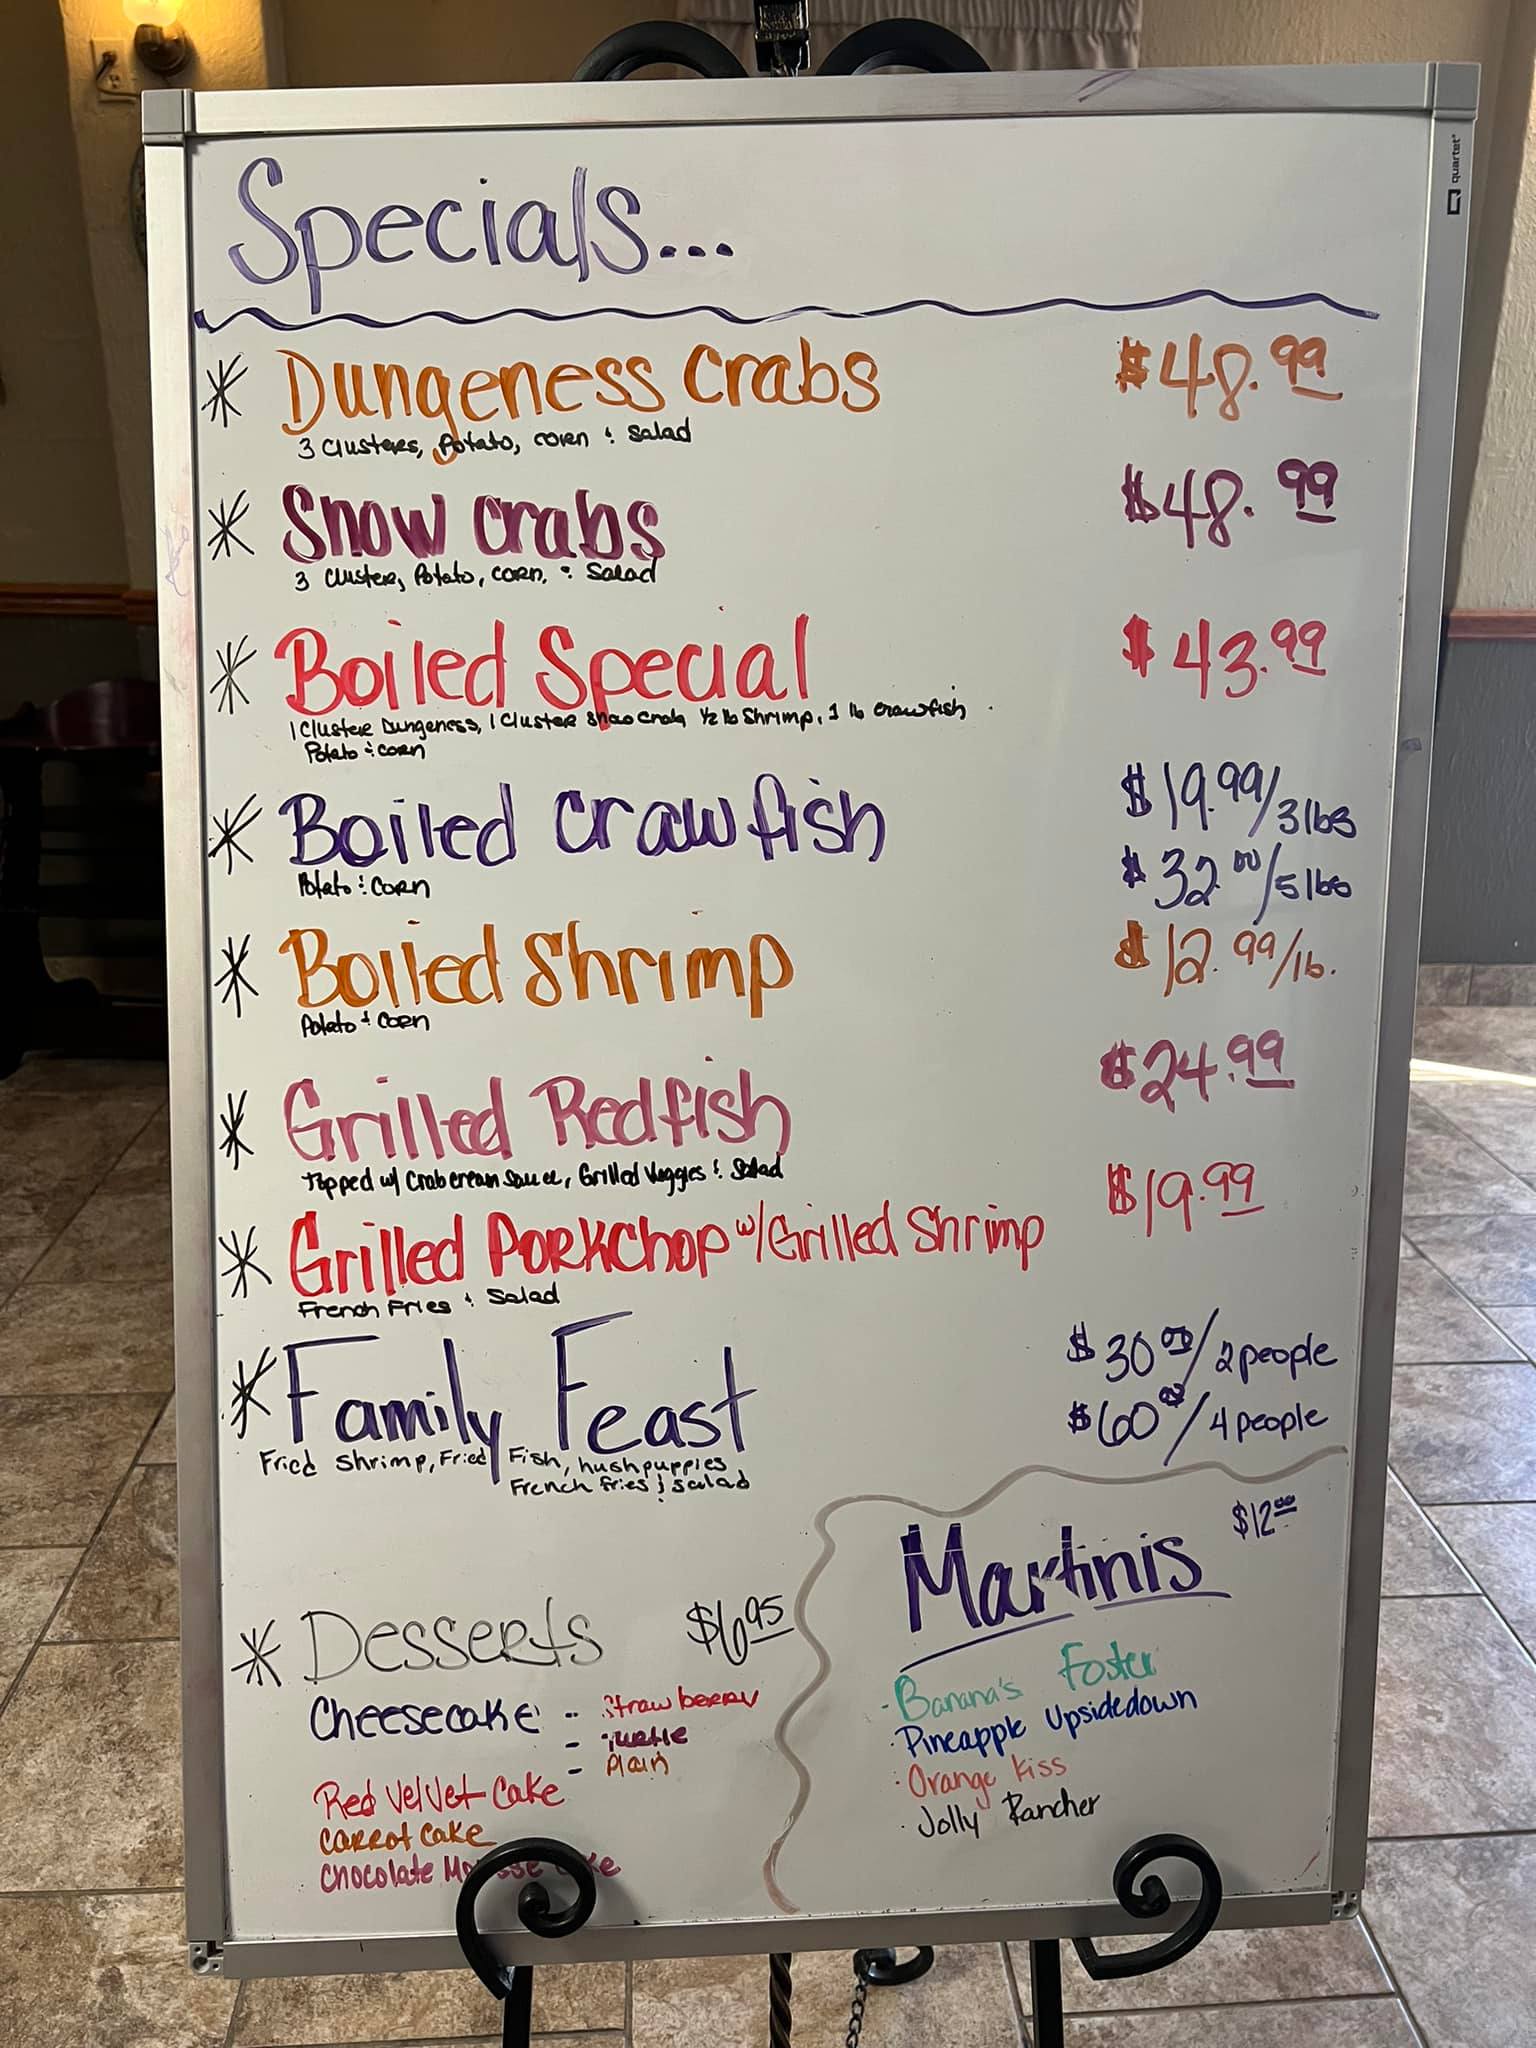 quartet
Specials...
* Dungeness Crabs $48.99
3 Clusters, Potato, corn & Salad
* Snow Crabs $48.99
3 Cluster, Potato, corn, & Salad
* Boiled Special $43.99
1 Cluster Dungeness, 1 Cluster Snow Crab, ½ lb Shrimp, 1 lb crawfish
Potato & corn
* Boiled Crawfish $19.99/3lbs
Potato & Corn $32.00/5lbs
* Boiled Shrimp $12.99/lb.
Potato & Corn
* Grilled Redfish $24.99
Topped w/ Crab cream Sauce, Grilled Veggies & Salad
* Grilled PorkChop w/Grilled Shrimp $19.99
French Fries & Salad
* Family Feast $30.00/2 people
$60.00/4 people
Fried Shrimp, Fried Fish, hushpuppies
French fries & salad
* Desserts $6.95
Cheesecake - Strawberry
- Turtle
- Plain
Red Velvet Cake
Carrot Cake
Chocolate Mousse Cake
Martinis $12.00
· Banana's Foster
· Pineapple Upsidedown
· Orange Kiss
· Jolly Rancher